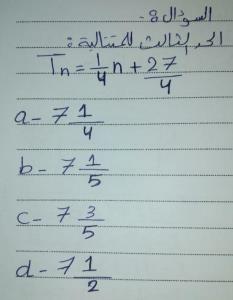 السؤال 8:-
الحد الثالث للمتتالية :
Tn = 1/4 n + 27/4
a- 7 1/4
b- 7 1/5
c- 7 3/5
d- 7 1/2